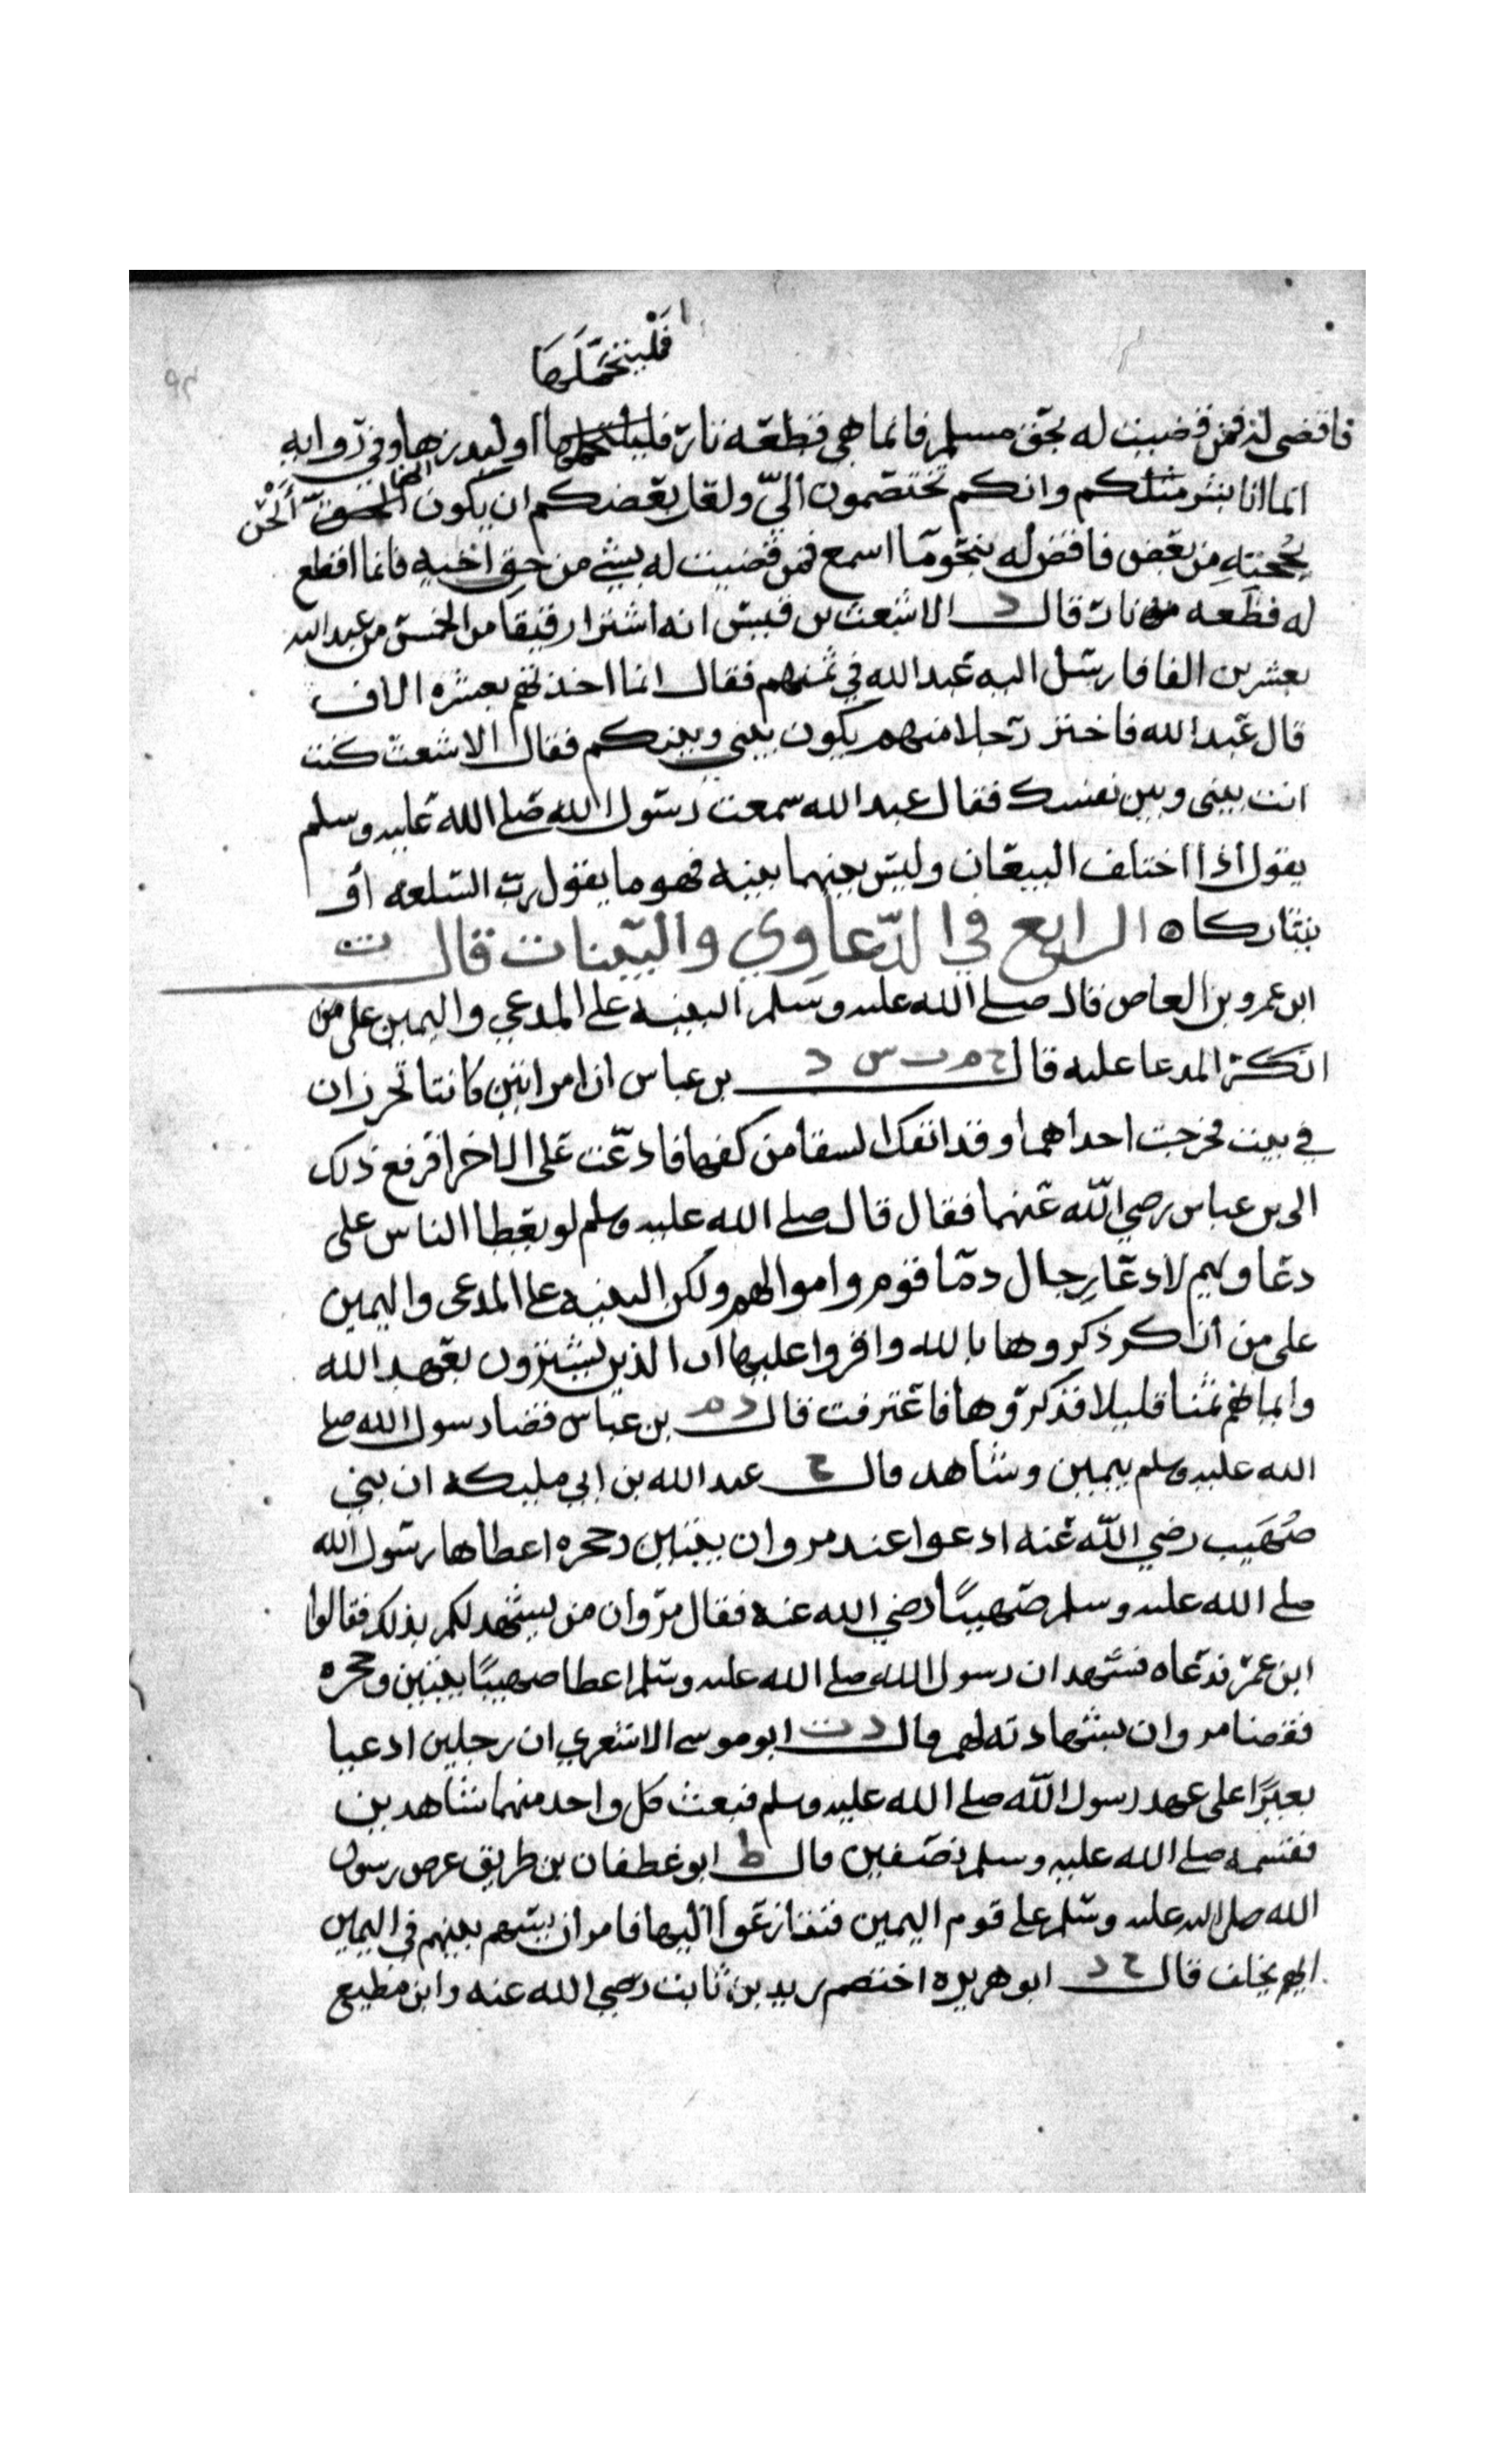 فليتحملها
فاقضى له فمن قضيت له بحق مسلم فانما هى قطعه نار فليحملها او ليذرها وفي روايه
انما انا بشر مثلكم وانكم تختصمون اليّ ولعل بعضكم ان يكون ألحن
بحجته من بعض فاقض له بنحو ما اسمع فمن قضيت له بشي من حق اخيه فانما اقطع
له قطعه من نار قال د الاشعث بن قيس انه اشترا رقيقا من الخمس من عبد الله
بعشرين الفا فارسل اليه عبد الله في ثمنهم فقال انما اخذتهم بعشره الاف
قال عبد الله فاختر رجلا منهم يكون بيني وبينكم فقال الاشعث كنت
انت بيني وبين نفسك فقال عبد الله سمعت رسول الله صلى الله عليه وسلم
يقول اذا اختلف البيعان وليس بينهما بينه فهو ما يقول رب السلعه أو
يتتاركا ه الرابع في الدّعاوي والبيّنات قال ت
ابن عمرو بن العاص قال صلى الله عليه وسلم البينه على المدعي واليمين على من
انكر المدعا عليه قال خ م ت س د بن عباس ان امراتين كانتا تخرزان
في بيت فخرجت احداهما وقد انفك اشفا من كفها فادعت على الاخرا فرفع ذلك
الى بن عباس رضي الله عنهما فقال قال صلى الله عليه وسلم لو يعطا الناس على
دعاويهم لادعا رجال دما قوم واموالهم ولكن البينه على المدعى واليمين
على من أنكر ذكروها بالله واقروا عليها ان الذين يشترون بعهد الله
وايمانهم ثمنا قليلا فذكروها فاعترفت قال د م بن عباس قضا رسول الله صلى
الله عليه وسلم بيمين وشاهد قال خ عبد الله بن ابي مليكه ان بني
صُهَيب رضي الله عنه ادعوا عند مروان بيتين وحجره اعطاها رسول الله
صلى الله عليه وسلم صهيبًا رضي الله عنه فقال مروان من يشهد لكم بذلك فقالوا
ابن عمر فدعاه فشهد ان رسول الله صلى الله عليه وسلم اعطا صهيبًا بيتين وحجره
فقضا مروان بشهادته لهم قال د ت ابو موسى الاشعري ان رجلين ادعيا
بعيرًا على عهد رسول الله صلى الله عليه وسلم فبعث كل واحد منهما شاهدين
فقسمه صلى الله عليه وسلم نصفين قال ط ابو غطفان بن طريق عرض رسول
الله صلى الله عليه وسلم على قوم اليمين فتنازعوا اليها فامر ان يسهم بينهم في اليمين
ايهم يحلف قال خ د ابو هريره اختصم زيد بن ثابت رضي الله عنه وابن مطيع